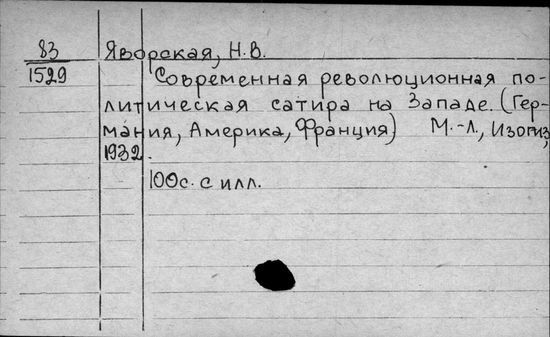 83 Яворская, Н.В.
1529 Современная революционная по-
литическая сатира на Западе. (Гер-
мания, Америка, Франция) М.-Л., Изогиз,
1932.
100с. с илл.